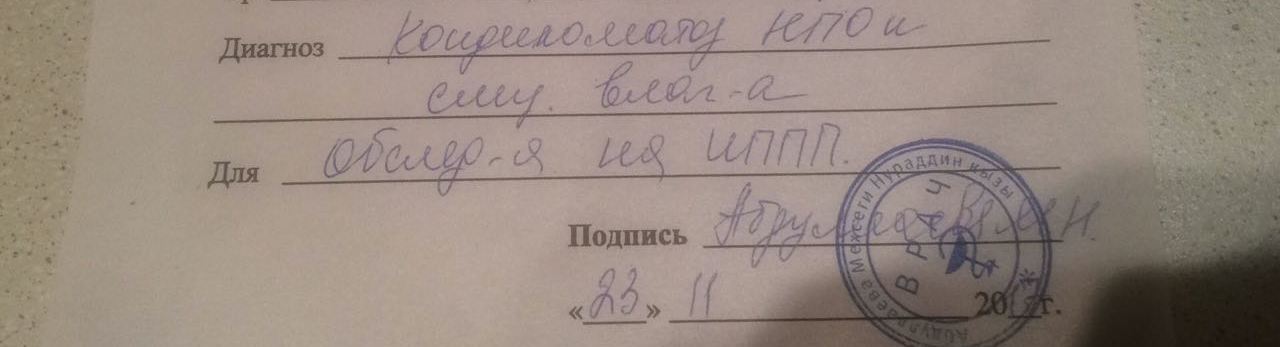 Диагноз Кондиломатоз НПО и
слиз. влаг-а
Для Обслед-я на ИППП.
Подпись
Абдуллаева Мехсети Нураддин кызы
Врач
«23» 11 20 г.